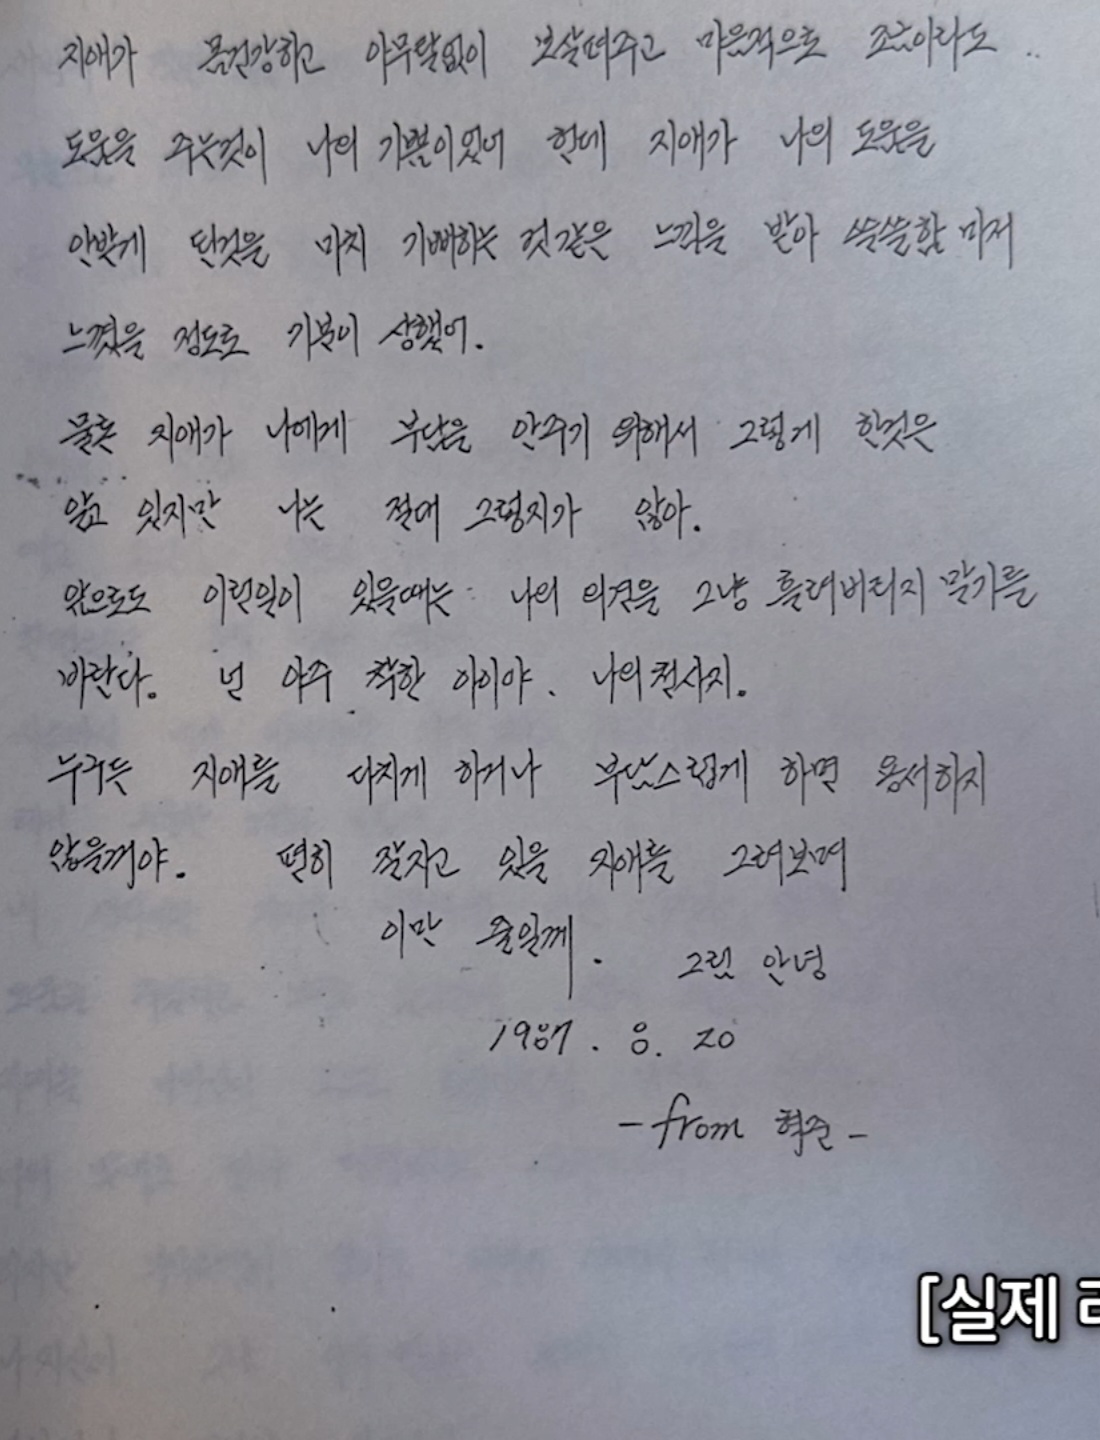 지애가 몸건강하고 아무탈없이 보살펴주고 마음적으로 조금이라도 ..
도움을 주는것이 나의 기쁨이었어 한데 지애가 나의 도움을
안받게 된것을 마치 기뻐하는 것 같은 느낌을 받아 쓸쓸함 마저
느꼈을 정도로 기분이 상했어.
물론 지애가 나에게 부담을 안주기 위해서 그렇게 한것은
알고 있지만 나는 절대 그렇지가 않아.
앞으로도 이런일이 있을때는 나의 의견을 그냥 흘려버리지 말기를
바란다. 넌 아주 착한 아이야. 나의 천사지.
누구든 지애를 다치게 하거나 부담스럽게 하면 용서하지
않을꺼야. 편히 잘자고 있을 지애를 그려보며
이만 줄일께. 그럼 안녕
1987. 8. 20
- from 혁준 -
[실제